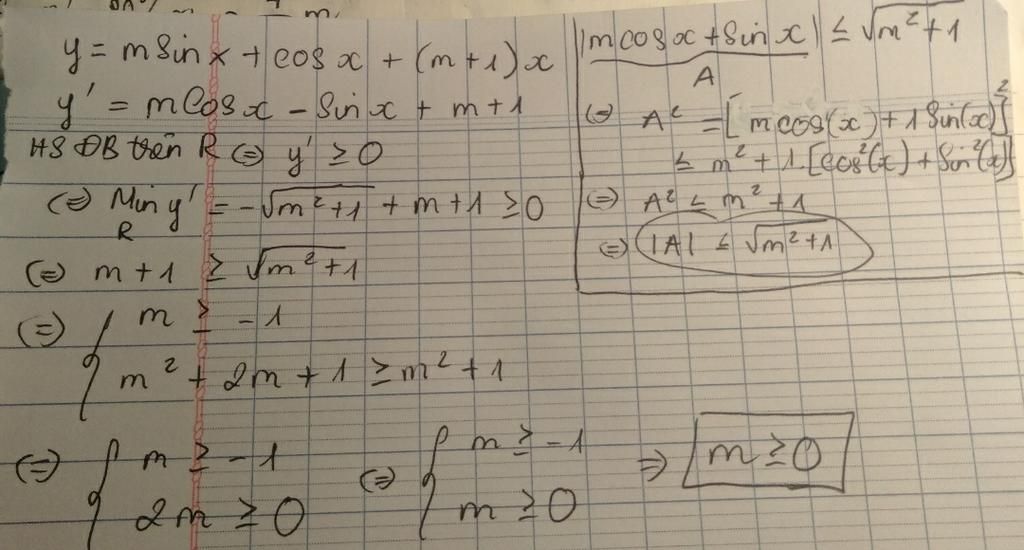 y = m Sin x + cos x + (m+1) x
y' = m Cos x - Sin x + m + 1
HS ĐB trên R (=) y' ≥ 0
(=) Min y' = -√(m²+1) + m+1 ≥ 0
R
(=) m+1 ≥ √(m²+1)
(=) { m ≥ -1
m² + 2m + 1 ≥ m² + 1
(=) { m ≥ -1
2m ≥ 0
(=) { m ≥ -1
m ≥ 0
=> m ≥ 0
|m cos x + Sin x| ≤ √(m²+1)
A
(=) A² = [m cos(x) + 1 Sin(x)]²
≤ m² + 1.[cos²(x) + Sin²(x)]
(=) A² ≤ m² + 1
(=) |A| ≤ √(m²+1)